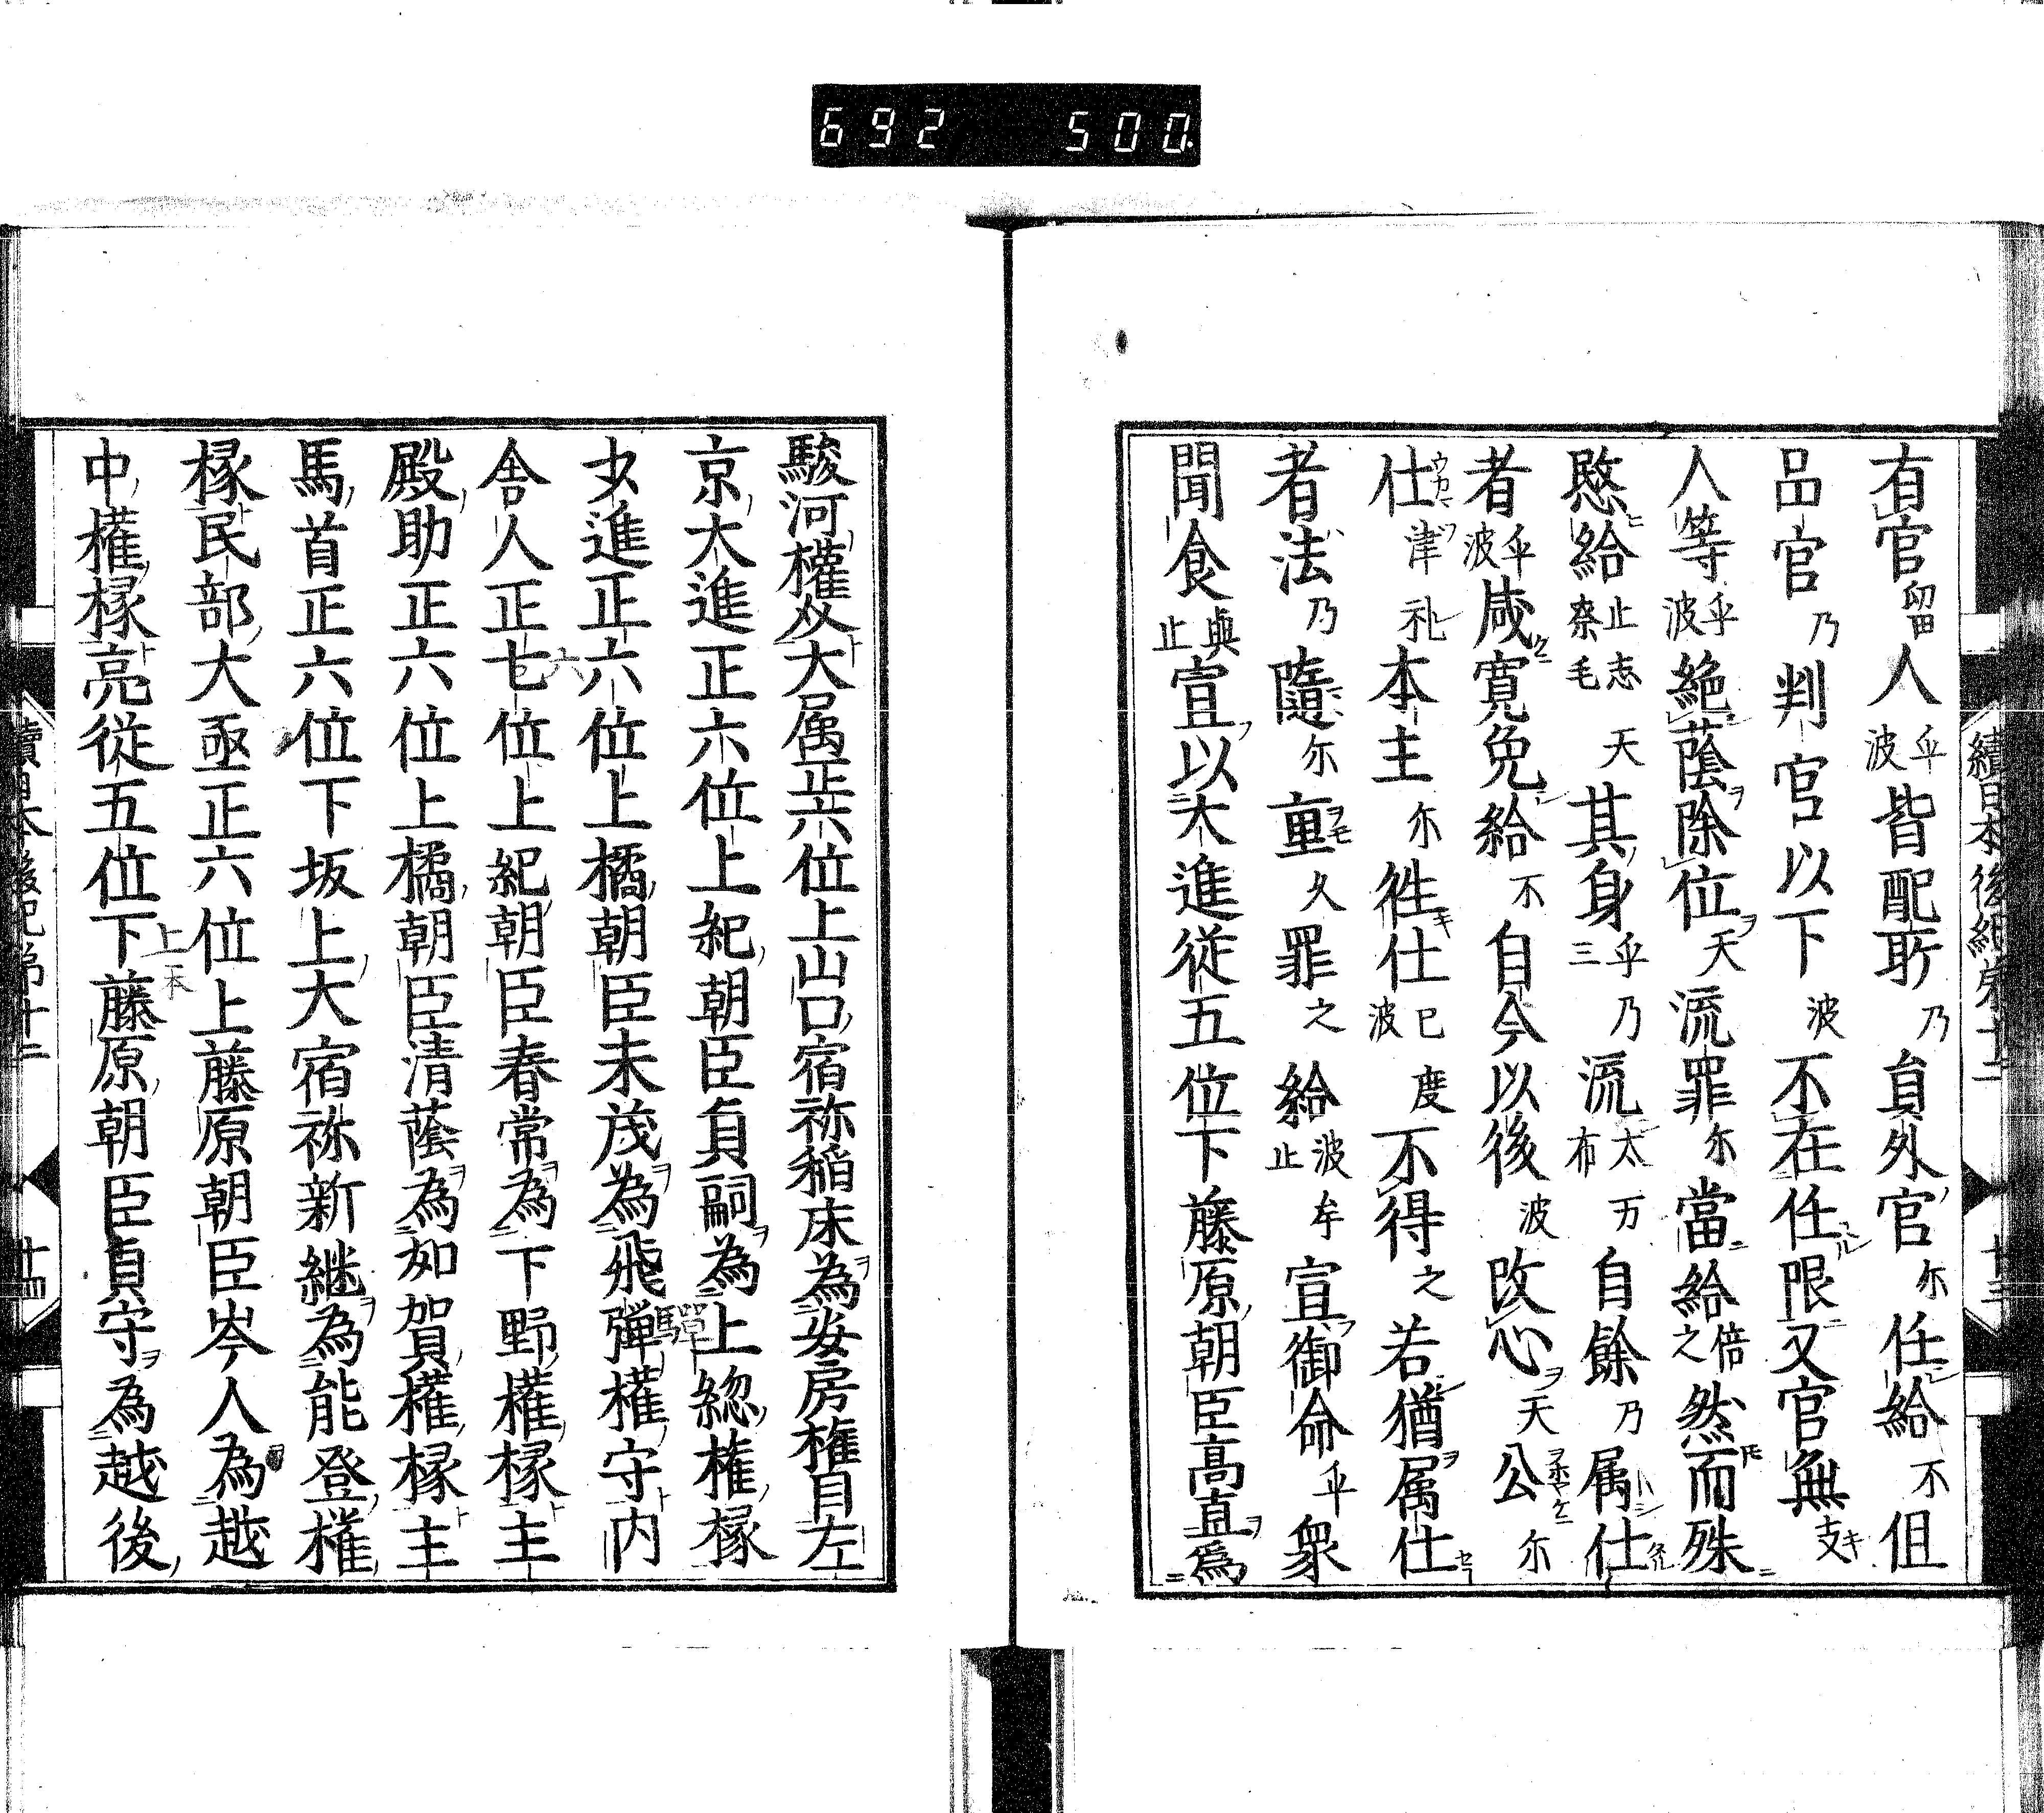 692 500
續日本後紀卷十二 十三
有官留人乎波皆配所乃員外官尓任給不但
品官乃判官以下波不在任限又官無支
人等乎波絶蔭除位天流罪尓當給倍之然而殊
愍給止志奈毛天其身乎三乃流太布万自餘乃属仕
者乎波咸寛免給不自今以後波改心天公尓
仕津礼本主尓徃仕己波度不得之若猶属仕
者法乃隨尓重久罪之給波牟止宣御命乎衆
聞食與止宣以大進従五位下藤原朝臣高直為
駿河權守大属正六位上山口宿祢稲床為安房權目左
京大進正六位上紀朝臣貞嗣為上総權掾
少進正六位上橘朝臣末茂為飛彈權守内
舎人正七位上紀朝臣春常為下野權掾主
殿助正六位上橘朝臣清蔭為加賀權掾主
馬首正六位下坂上大宿祢新継為能登權
掾民部大丞正六位上藤原朝臣岑人為越
中權掾亮従五位下藤原朝臣貞守為越後
續日本後紀第十二 十四